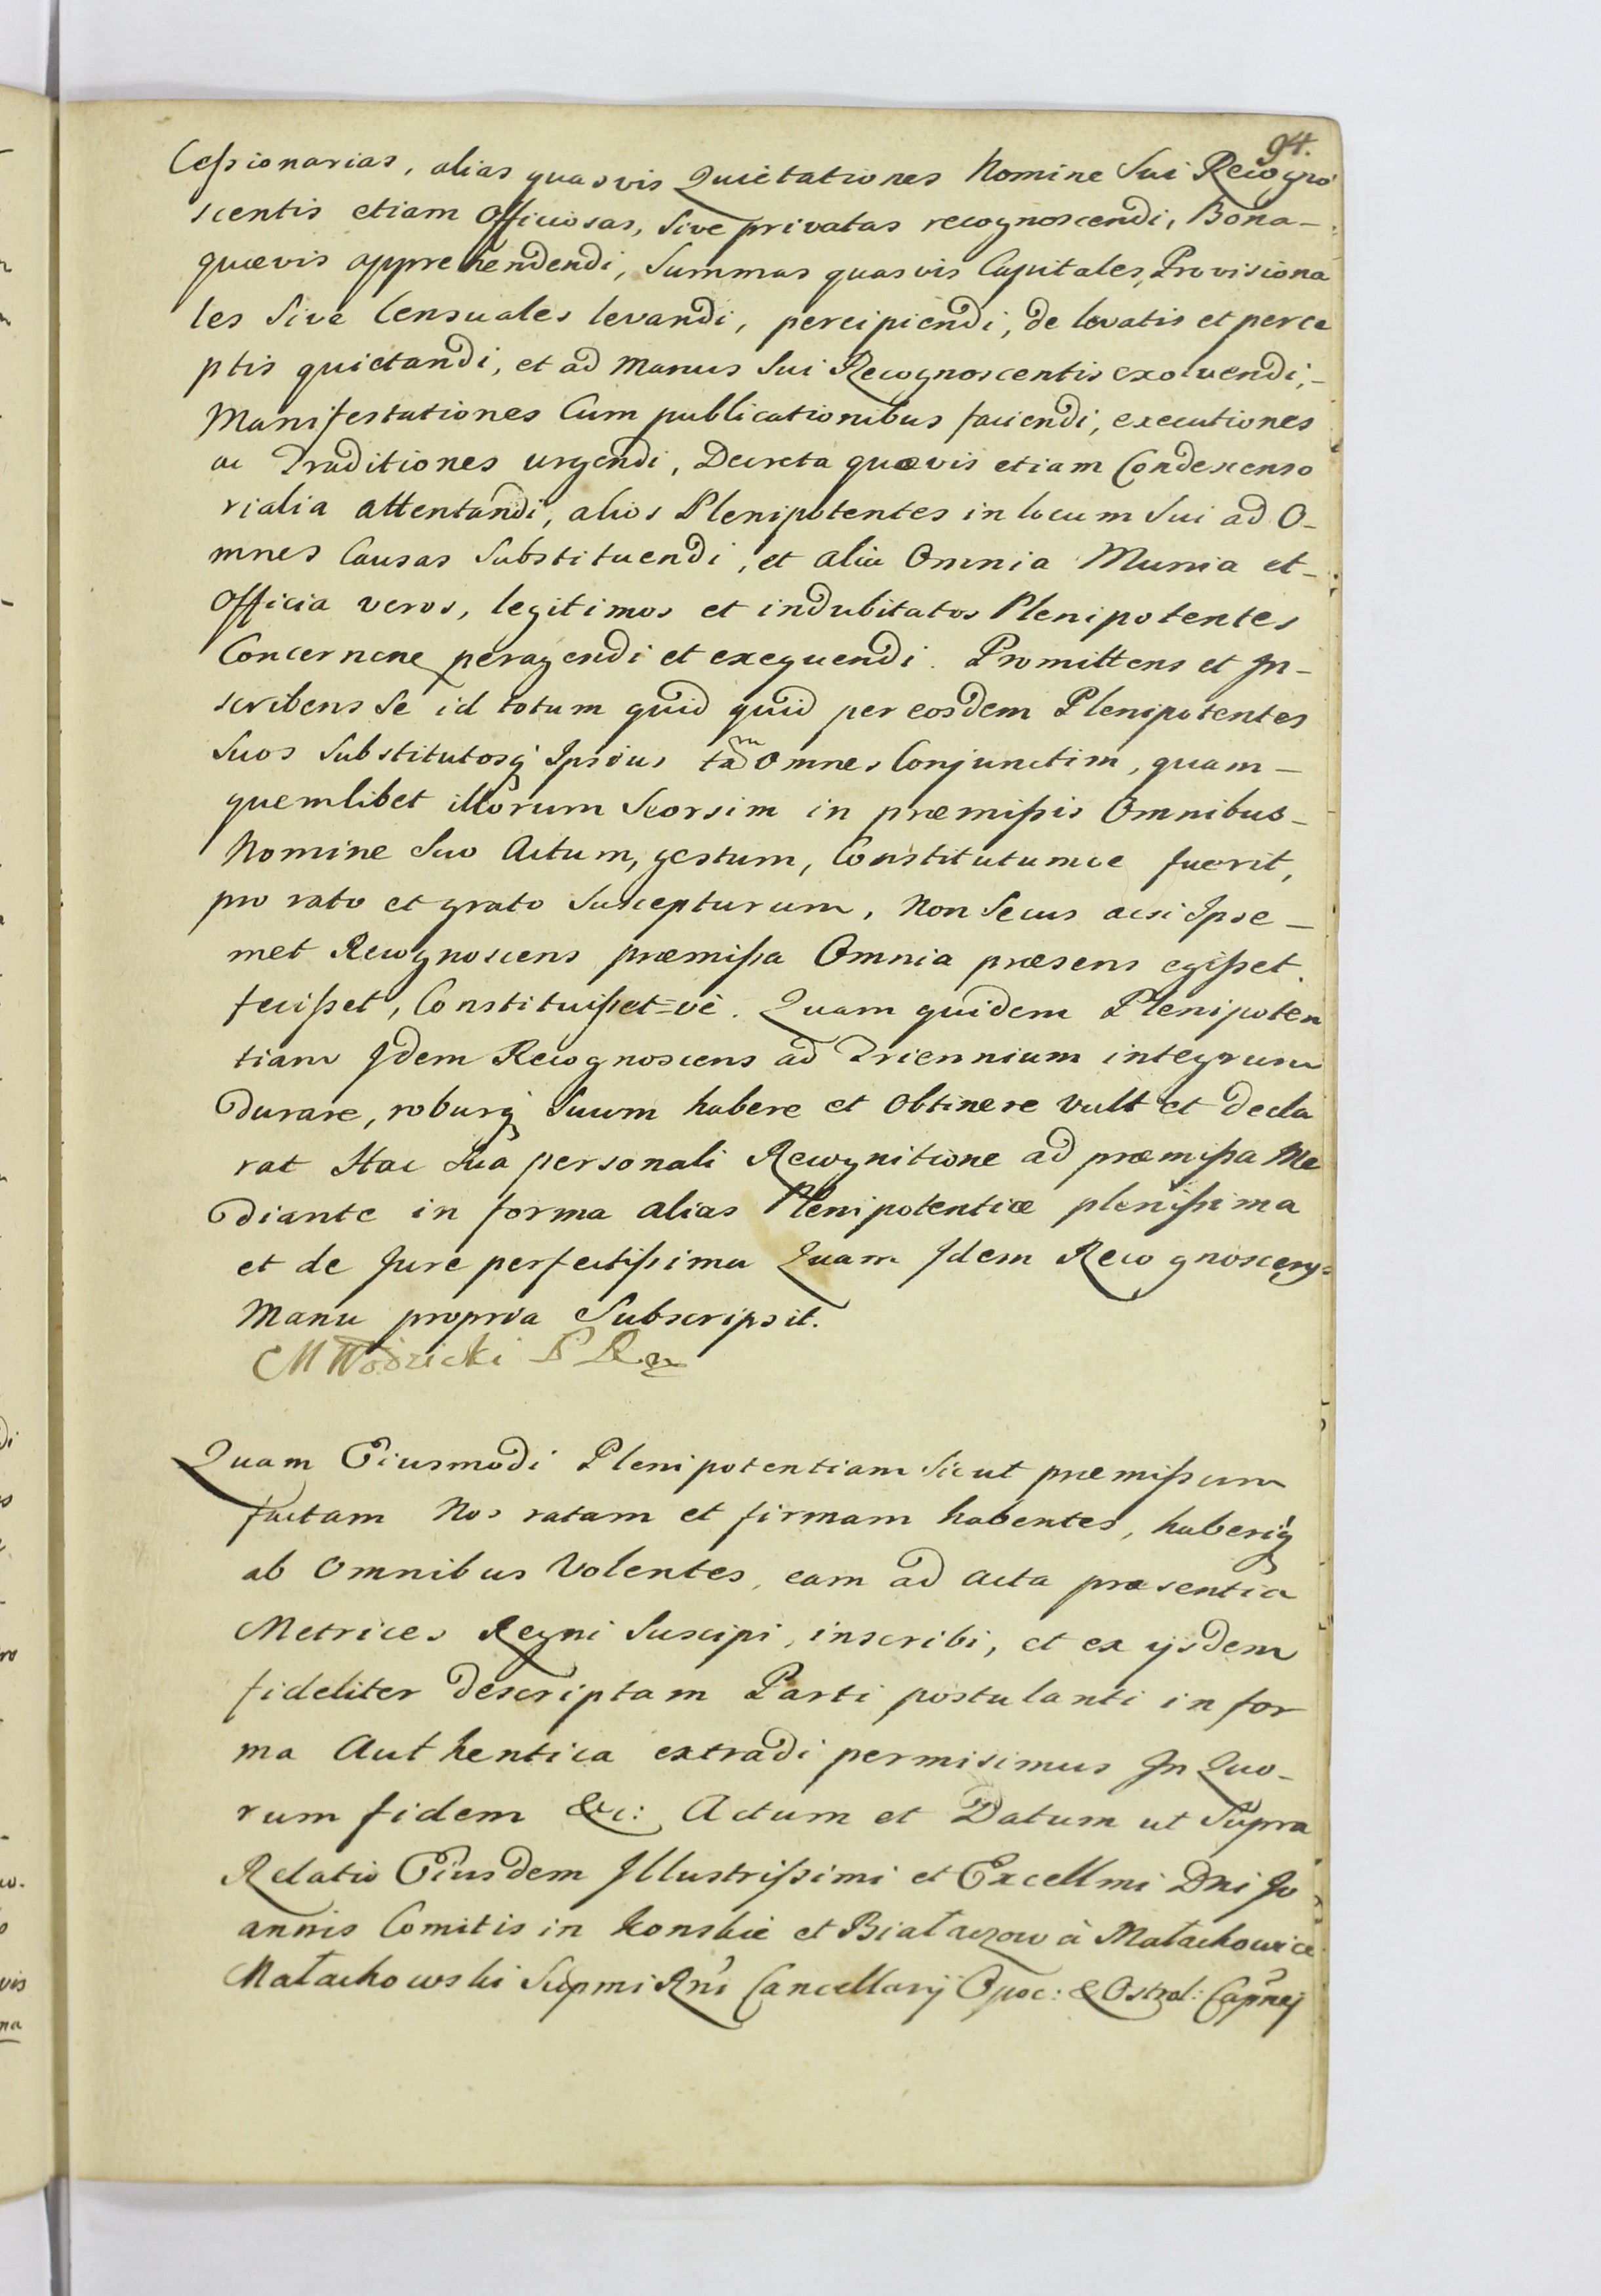 94.
Cessionarias, alias quasvis Quietationes Nomine Sui Recogno
scentis etiam Officiosas, Sive privatas recognoscendi, Bona-
quævis apprehendendi, Summas quasvis Capitales, Provisiona
les Sive Censuales levandi, percipiendi, de levatis et perce
ptis quietandi, et ad Manus Sui Recognoscentis exolvendi,-
Manifestationes Cum publicationibus faciendi, executiones
ac Traditiones urgendi, Decreta quævis etiam Condescenso
rialia attentandi, alios Plenipotentes in locum Sui ad O-
mnes Causas Substituendi, et alia Omnia Munia et-
Officia veros, legitimos et indubitatos Plenipotentes
Concernene peragendi et exequendi. Promittens et In-
scribens Se id totum quid quid per eosdem Plenipotentes
Suos Substitutosq Ipsius tam Omnes Conjunctim, quam-
quemlibet illorum Seorsim in præmissis Omnibus-
Nomine Suo Actum, gestum, Constitutumve fuerit,
pro rato et grato Suscepturum, Non Secus acsi Ipse-
met Recognoscens præmissa Omnia præsens egisset.
fecisset, Constituisset=vè. Quam quidem Plenipoten
tiam Idem Recognoscens ad Triennium integrum
durare, roburq Suum habere et Obtinere Vult et decla
rat Hac Suâ personali Recognitione ad præmissa Me
diante in forma alias Plenipotentiæ plenissima
et de Jure perfectissima Quam Idem Recognoscens=
Manu propria Subscripsit.
MWodzicki
Quam Eiusmodi Plenipotentiam Sicut præmissum
factam Nos ratam et firmam habentes, haberiq
ab Omnibus Volentes, eam ad acta præsentia
Metrices Regni Suscipi, inscribi, et ex ijsdem
fideliter descriptam Parti postulanti in for
ma Authentica extradi permisimus In Quo-
rum fidem &c: Actum et Datum ut Supra
Relatio Eiusdem Illustrissimi et Excellmi Dni Jo
annis Comitis in Konskie et Białaczow à Małachowice
Małachowski Supmi Rni Cancellarij Opoc: & Ostrol: Capnej